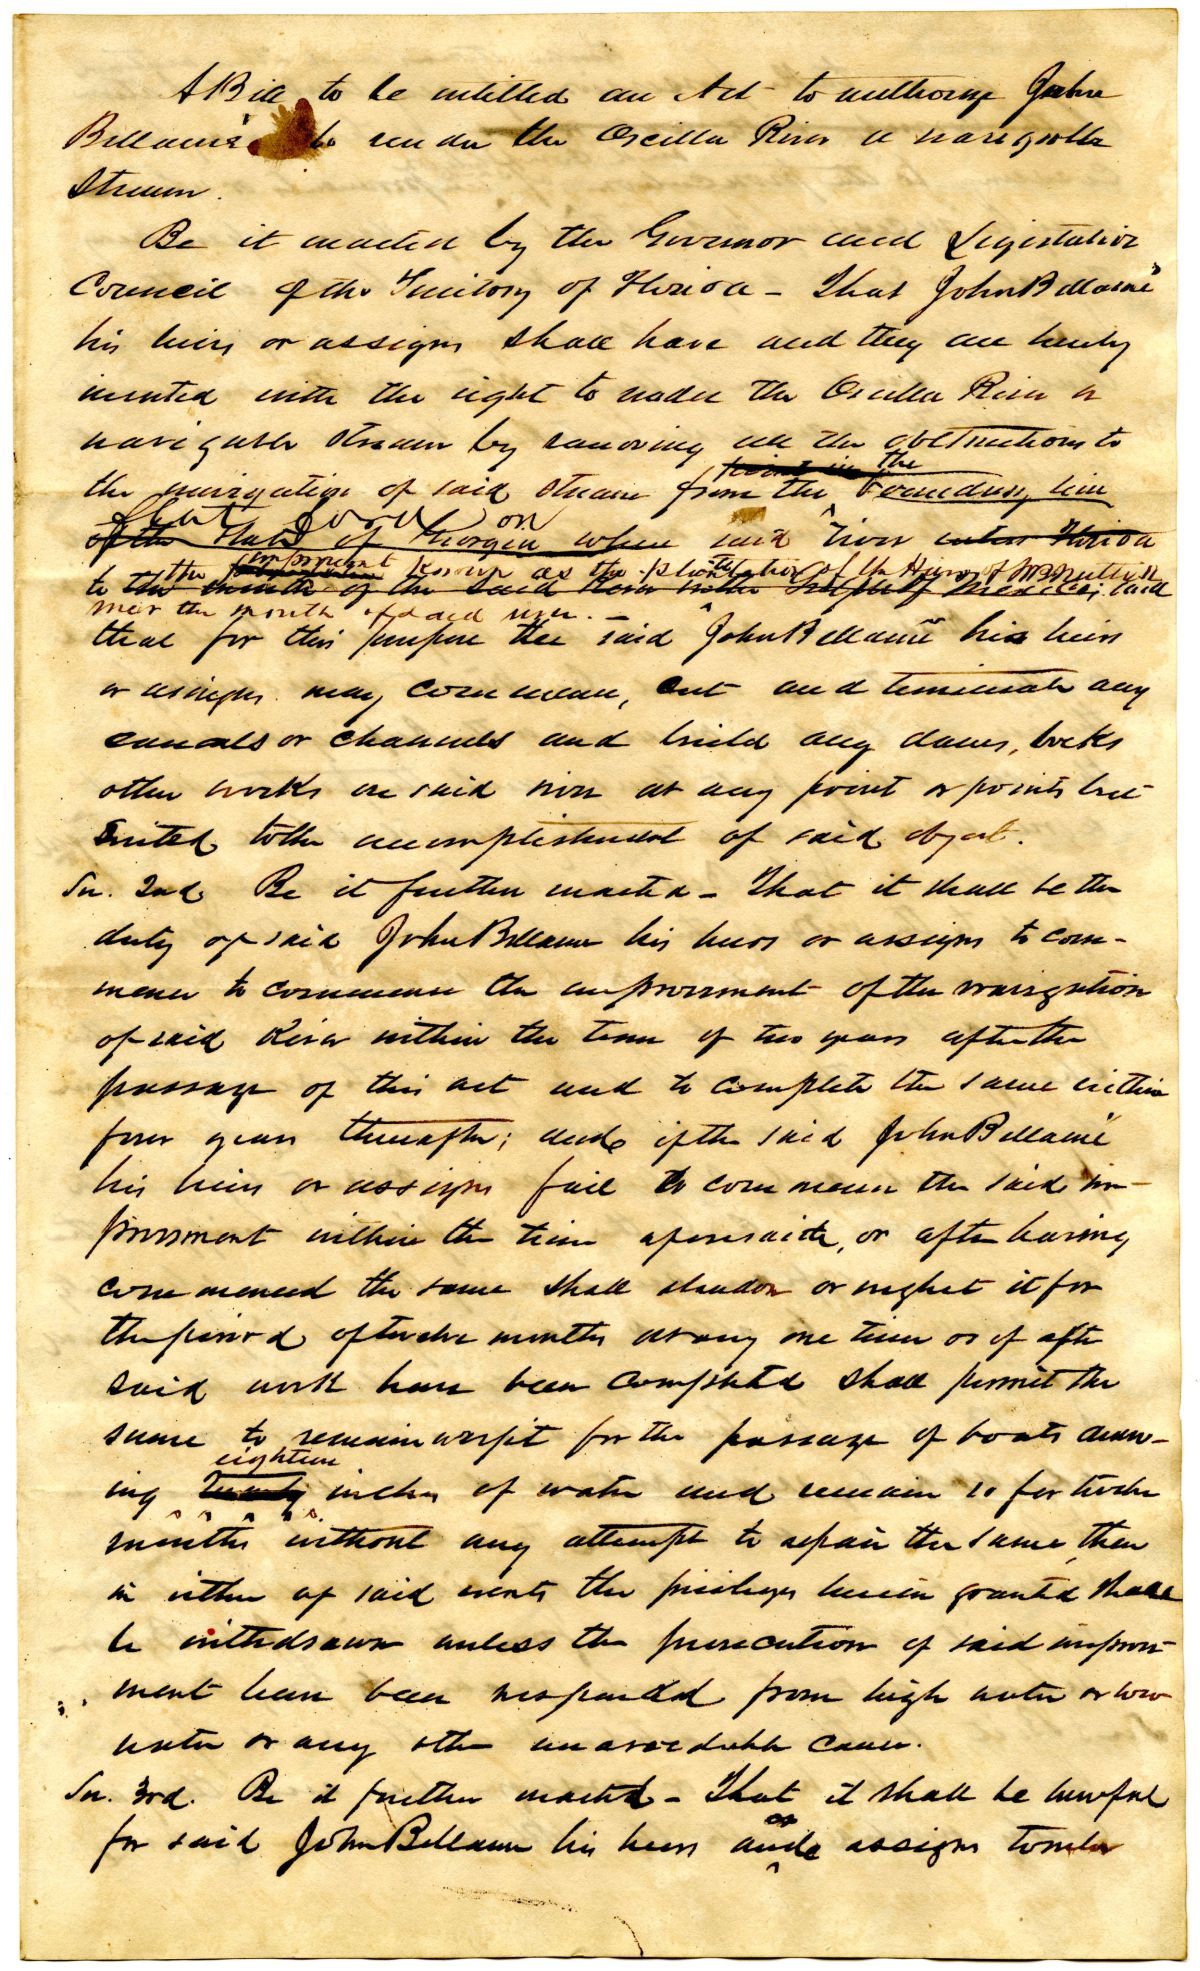 A Bill to be entitled an Act to authorize John
Bellamé to render the Oscilla River a navigable
Stream.
Be it enacted by the Governor and Legislative
Council of the Territory of Florida – That John Bellamé
his heirs or assigns shall have and they are hereby
invested with the right to render the Oscilla River a
navigable stream by removing all the obstructions to
point in the
the navigation of said stream from the boundary line
ford on
of the State of Georgia where said river enters Florida
the improvement known as the plantation of the Heirs of
to the mouth of the said River in the Gulf of Mexico; and
near the mouth of said river. –
that for this purpose the said John Bellamé his heirs
or assigns may commence, cut and terminate any
canals or channels and build any dams, locks
other works on said river at any point or points best
suited to the accomplishment of said object.
Sec. 2nd Be it further enacted – That it shall be the
duty of said John Bellamé his heirs or assigns to com-
mence to commence the improvement of the navigation
of said River within the term of two years after the
passage of this act and to complete the same within
four years thereafter; and if the said John Bellamé
his heirs or assigns fail to commence the said im-
provement within the time aforesaid, or after having
commenced the same shall abandon or neglect it for
the period of twelve months at any one time or if after
said work have been completed shall permit the
same to remain unfit for the passage of boats draw-
eighteen
ing twenty inches of water and remain so for twelve
months without any attempt to repair the same, then
in either of said events the privileges herein granted shall
be withdrawn unless the prosecution of said improve-
ment have been suspended from high water or low
water or any other unavoidable cause.
Sec. 3rd. Be it further enacted – That it shall be lawful
or
for said John Bellamé his heirs and assigns to